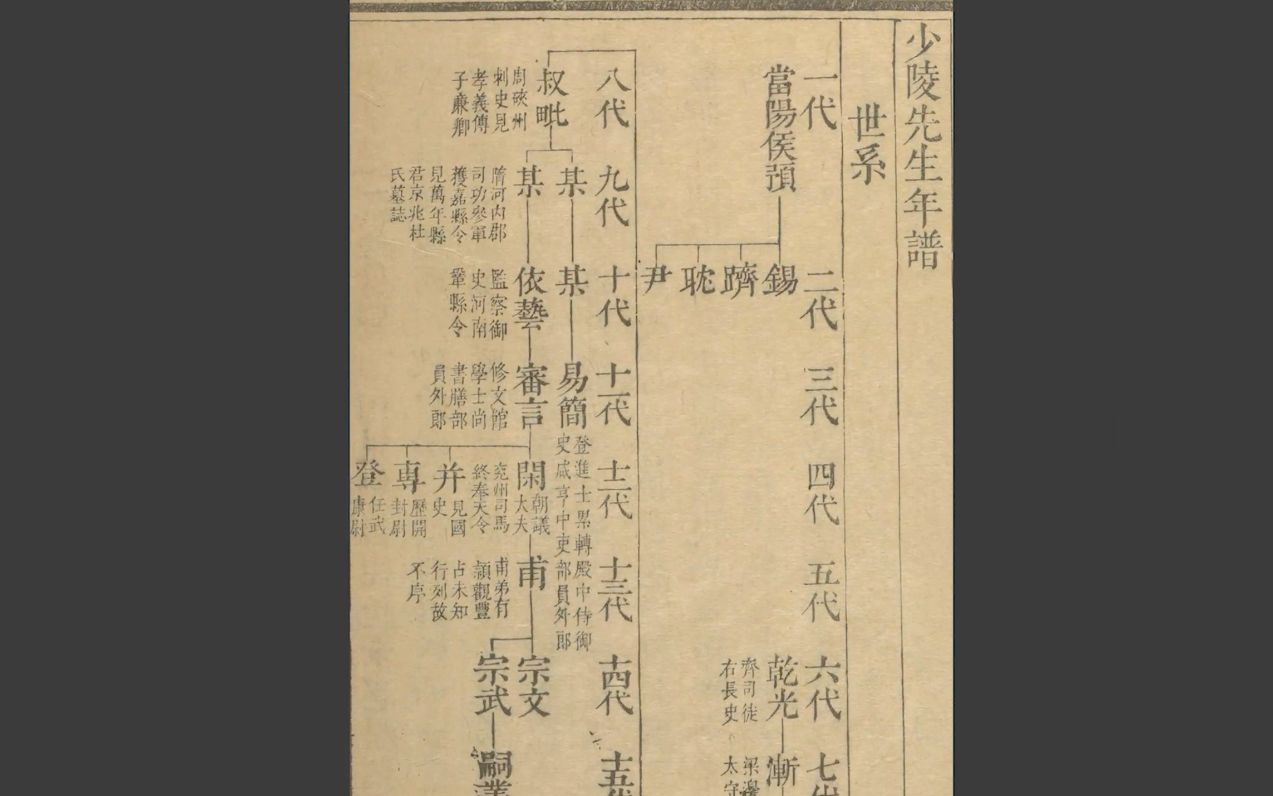 少陵先生年譜
世系
一代
當陽侯預
二代
錫
躋
耽
尹
三代
四代
五代
六代
乾光
齊司徒
右長史
七代
漸
梁邊
太守
八代
叔毗
周硤州
刺史見
孝義傳
子廉卿
九代
某
某
隋河內郡
司功參軍
獲嘉縣令
見萬年縣
君京兆杜
氏墓誌
十代
某
依藝
監察御
史河南
鞏縣令
十一代
易簡
登進士累轉殿中侍御
史咸亨中吏部員外郎
審言
修文館
學士尚
書膳部
員外郎
十二代
閑
朝議
大夫
兖州司馬
終奉天令
并
見國
史
專
歷開
封尉
登
任武
康尉
十三代
甫
甫弟有
穎觀豐
占未知
行列故
不序
十四代
宗文
宗武
十五代
嗣業